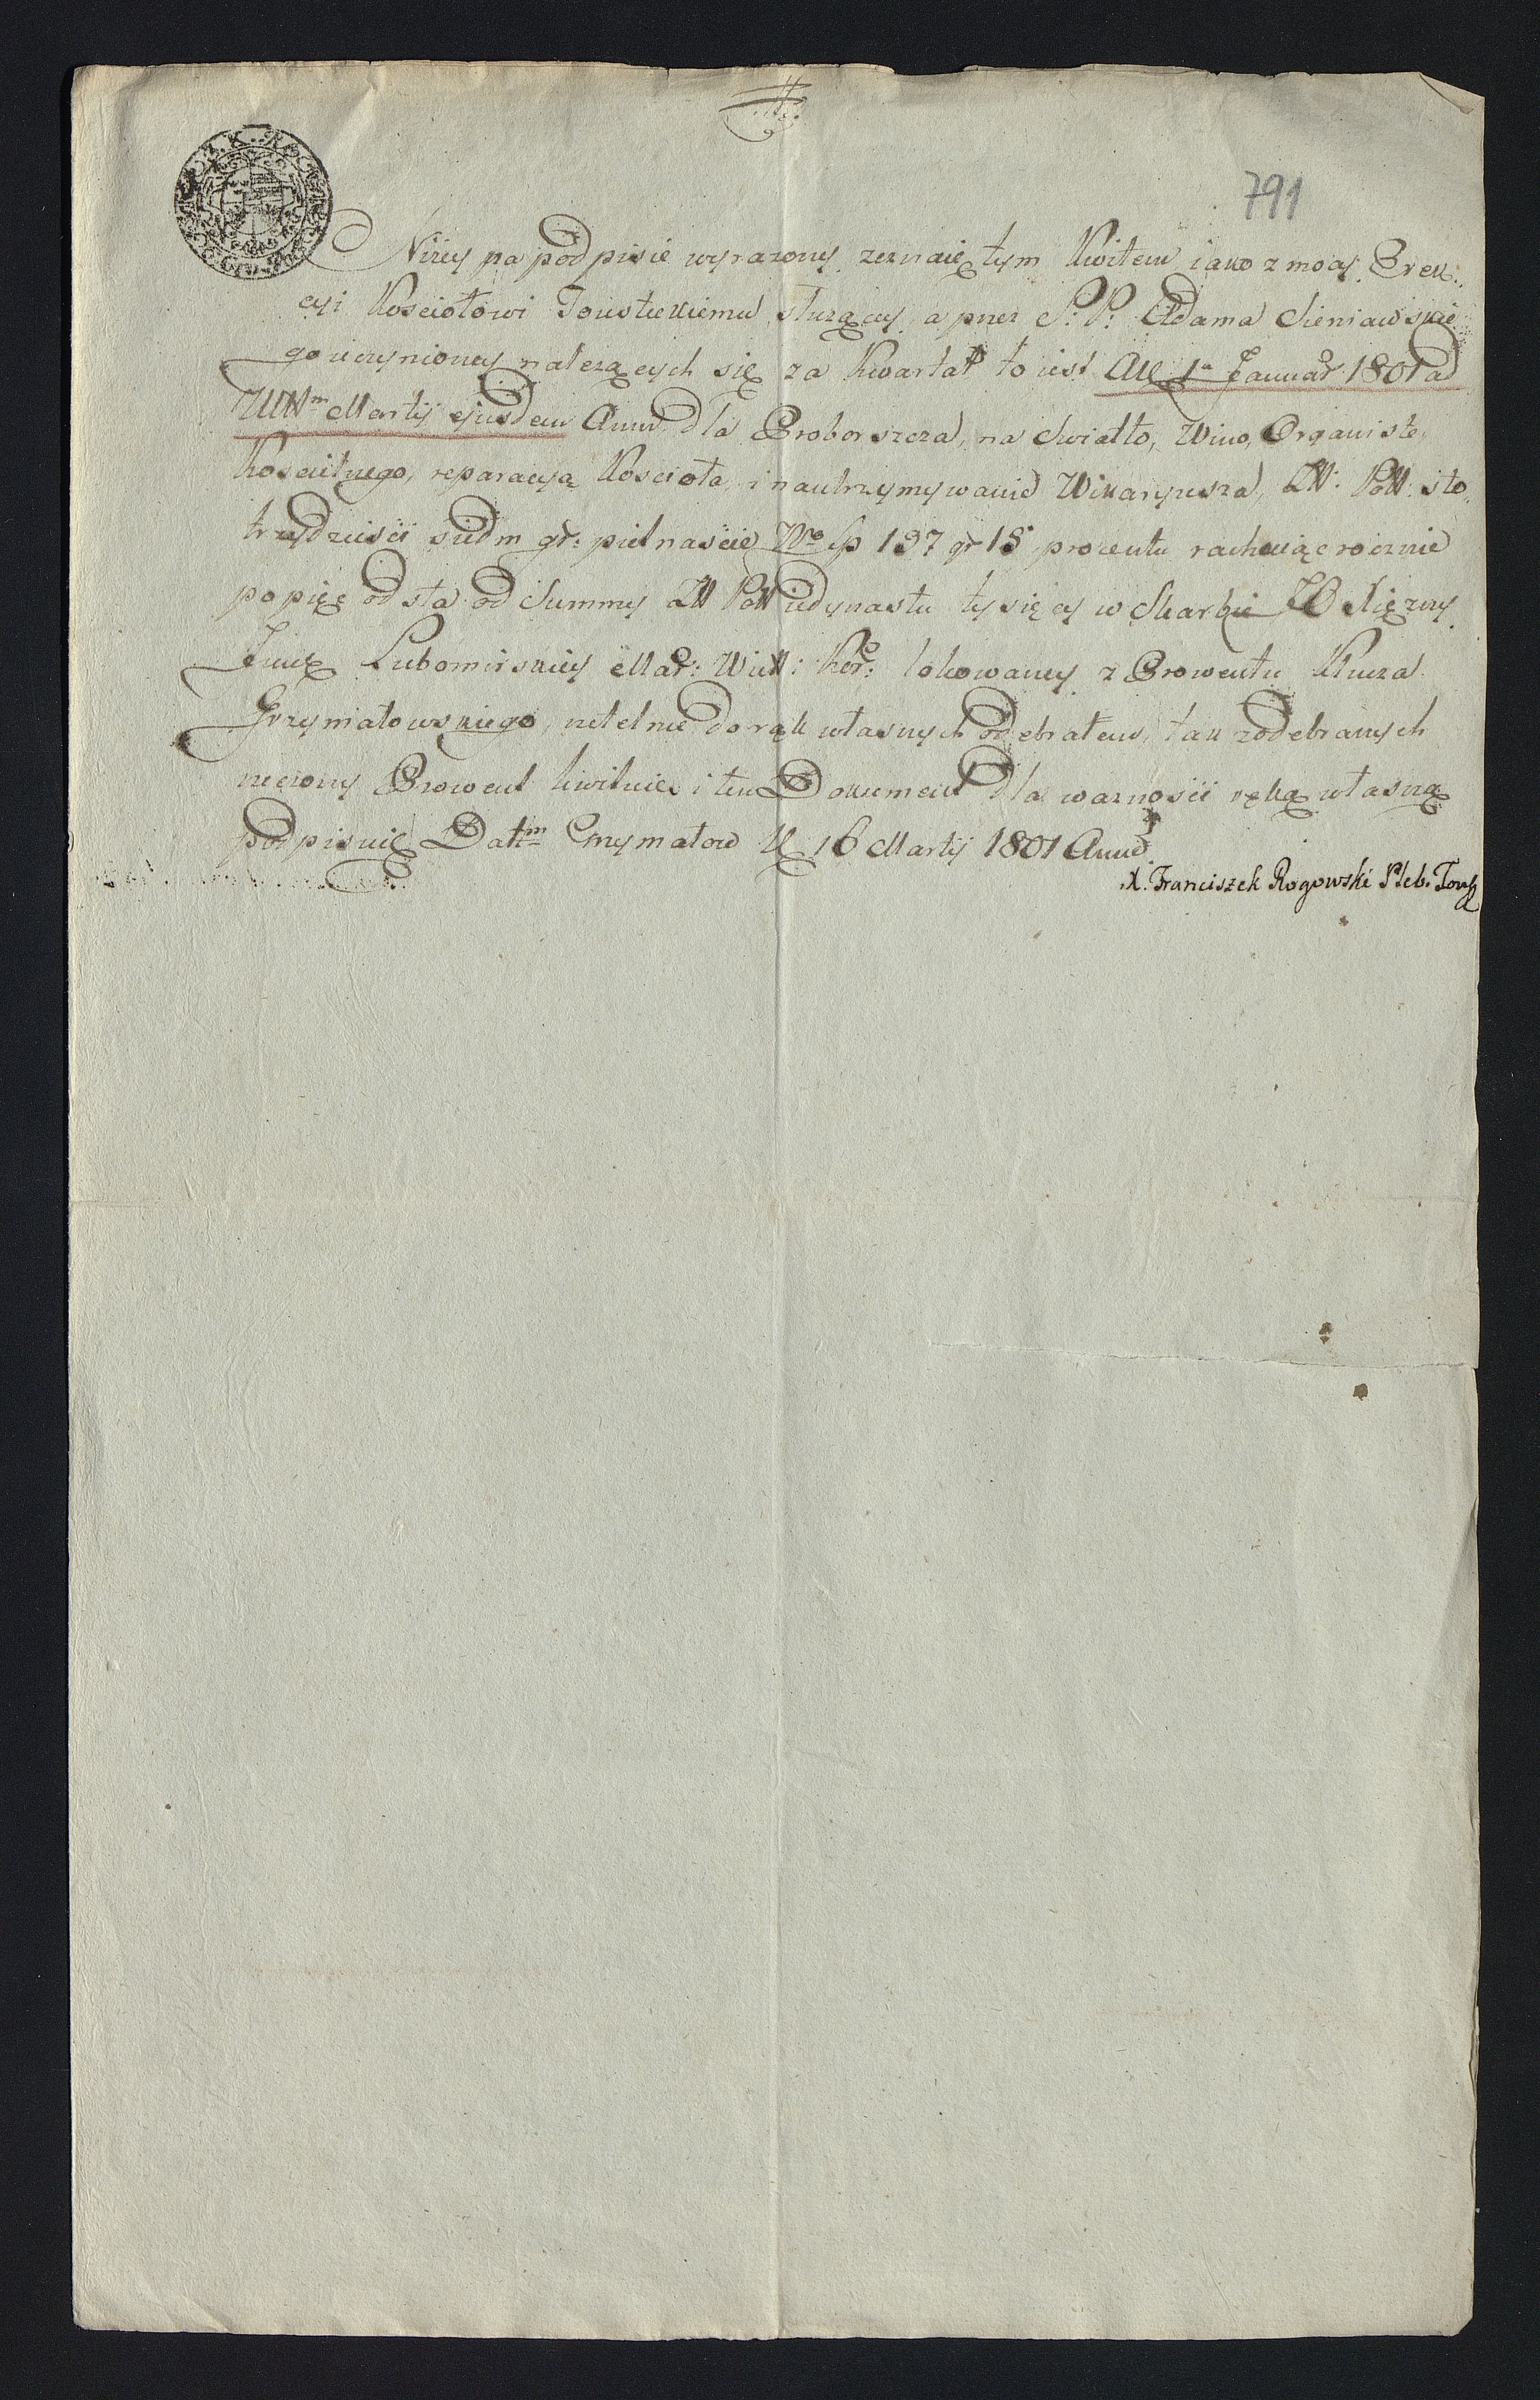 791
Niżey na podpisie wyrazony zeznaię tym Kwitem iako z mocy Erek„
cyi Kosciołowi Tousteckiemu służącey a przez S: P: Adama Sieniawskie
go uczynioney nalezących się za Kwartał to iest a 1ª Januar 1801 ad
Ult̃m Martij ejusdem Anni dla Proborszcza, na Swiatło, Wino, Organistę,
Koscielnego, reparacyą Koscioła, i na utrzymywanie Wikaryusza, Zł: Poll: sto
trzydziesci siedm gr: pietnascie No fp 137 gr 15 procentu rachuiąc rocznie
po pięć od sta od Summy Zł Poll iedynastu tysięcy w Skarbie JO Xiężny
Jmci Lubomirskiey Mar: Wiel: Kor: lokowaney z Prowentu Klucza
Grzymałowskiego, rzetelnie do rąk własnych odebrałem, tak z odebranych
rzeczony Prowent kwituię i ten Dokument dla waznosci ręką własną
podpisuię Datt̃m Grzymałow d 16 Martij 1801 Anno
X. Franciszek Rogowski Pleb. Toust